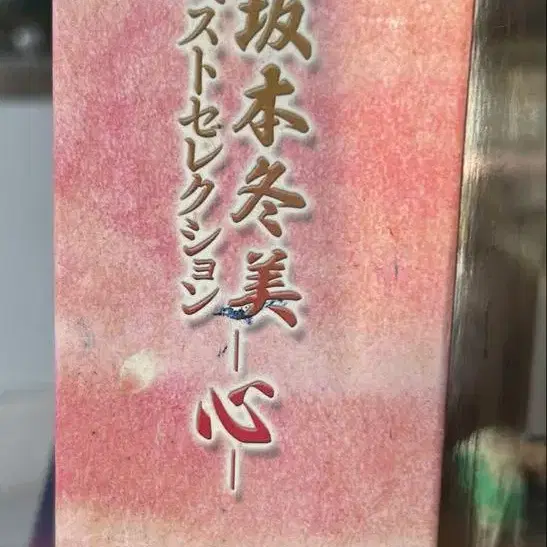 坂本冬美
ストセレクション
—心—